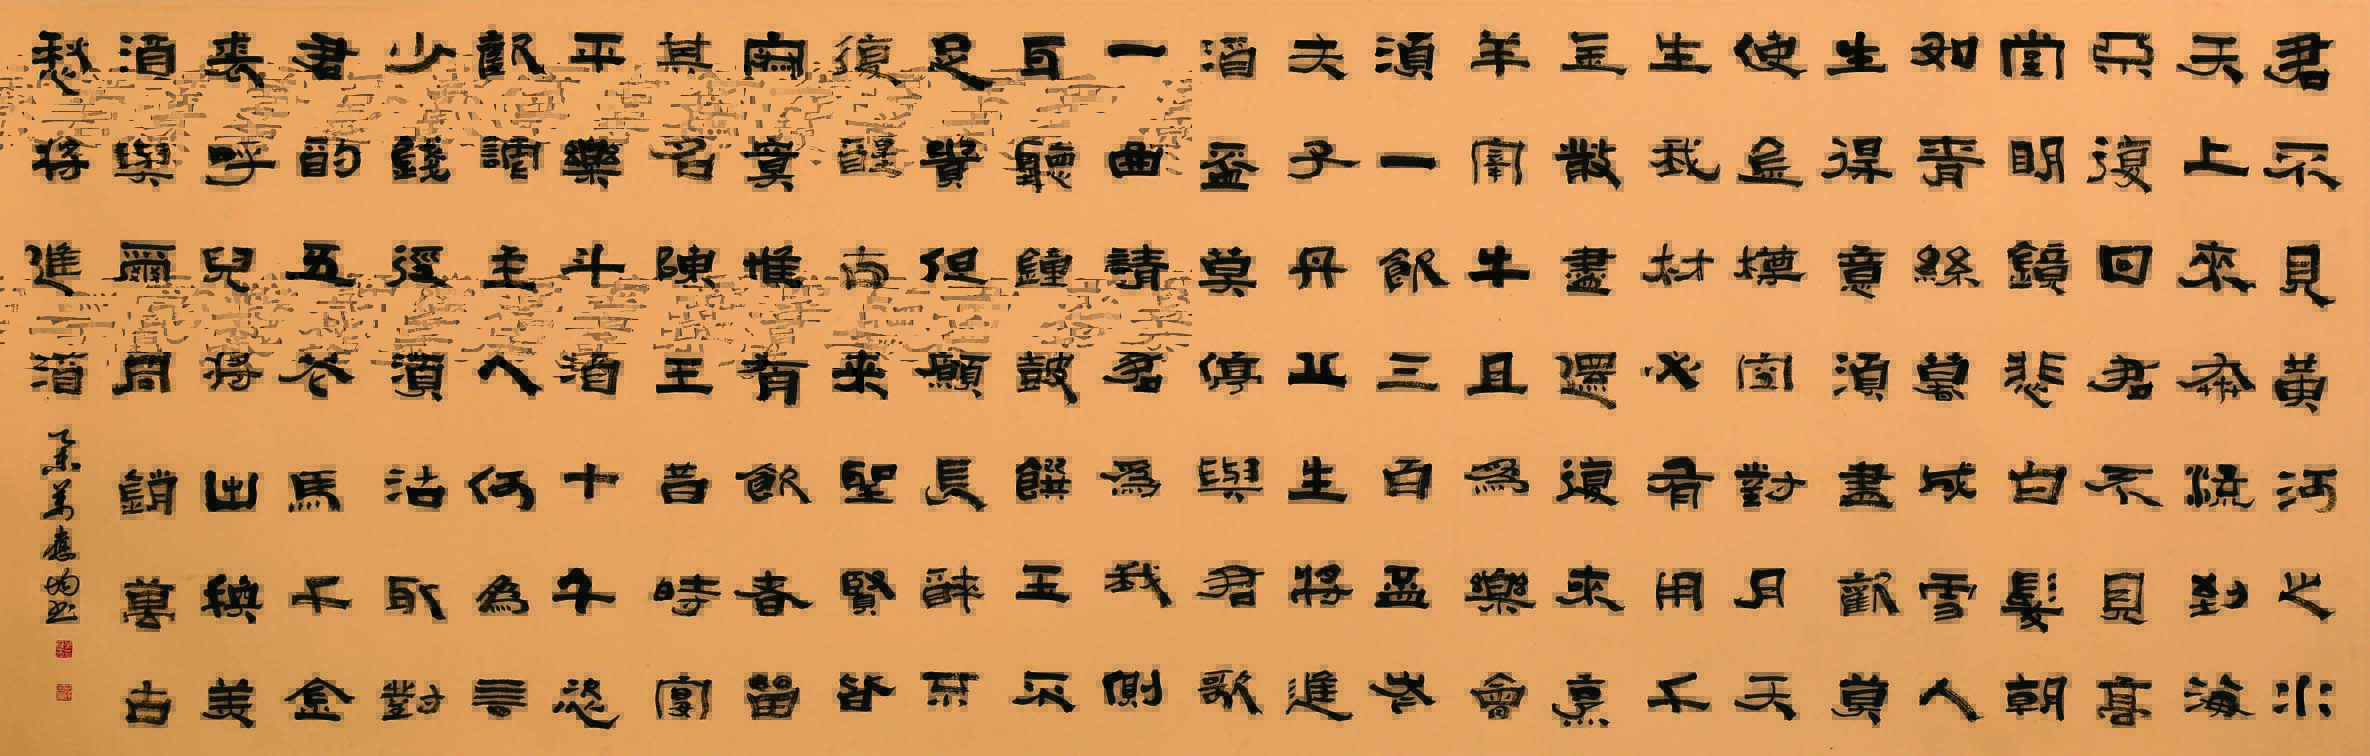 君不見黃河之水
天上來奔流到海
不復回君不見高
堂明鏡悲白髮朝
如青絲暮成雪人
生得意須盡歡莫
使金樽空對月天
生我材必有用千
金散盡還復來烹
羊宰牛且為樂會
須一飲三百盃岑
夫子丹丘生將進
酒盃莫停與君歌
一曲請君為我側
耳聽鐘鼓饌玉不
足貴但願長醉不
復醒古來聖賢皆
寂寞惟有飲者留
其名陳王昔時宴
平樂斗酒十千恣
歡謔主人何為言
少錢徑須沽取對
君酌五花馬千金
裘呼兒將出換美
酒與爾同銷萬古
愁將進酒
乙未應均書